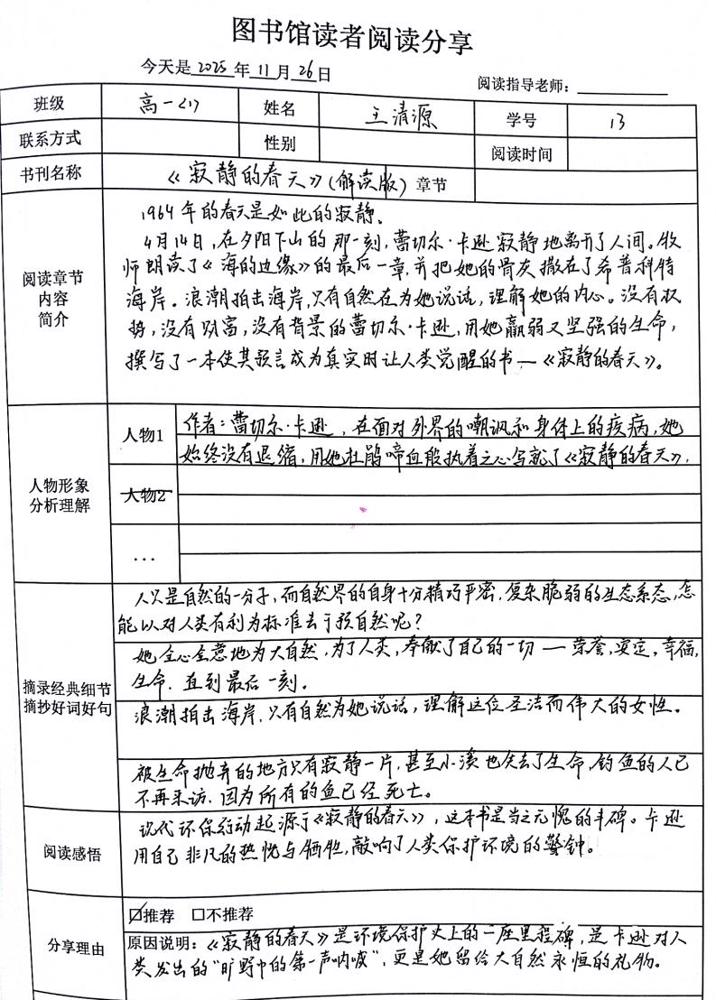 图书馆读者阅读分享
今天是 2025 年 11 月 26 日
阅读指导老师：
班级 高一(1) 姓名 王清源 学号 13
联系方式 性别 阅读时间
书刊名称 《寂静的春天》(解读版) 章节
阅读章节
内容
简介
1964年的春天是如此的寂静。
4月14日，在夕阳下山的那一刻，蕾切尔·卡逊寂静地离开了人间。牧
师朗读了《海的边缘》的最后一章，并把她的骨灰撒在了希普科特
海岸。浪潮拍击海岸，只有自然在为她说话，理解她的内心。没有权
势，没有财富，没有背景的蕾切尔·卡逊，用她羸弱又坚强的生命，
撰写了一本使其预言成为真实时让人类觉醒的书—《寂静的春天》。
人物形象
分析理解
人物1
作者：蕾切尔·卡逊，在面对外界的嘲讽和身体上的疾病，她
始终没有退缩，用她杜鹃啼血般执着之心写就了《寂静的春天》，
人物2
...
摘录经典细节
摘抄好词好句
人只是自然的一分子，而自然界的自身十分精巧严密，复杂脆弱的生态系态，怎
能以对人类有利为标准去干预自然呢？
她全心全意地为大自然，为了人类，奉献了自己的一切 — 荣誉，安定，幸福，
生命，直到最后一刻。
浪潮拍击海岸，只有自然为她说话，理解这位圣洁而伟大的女性。
被生命抛弃的地方只有寂静一片，甚至小溪也失去了生命，钓鱼的人已
不再来访，因为所有的鱼已经死亡。
阅读感悟
现代环保行动起源于《寂静的春天》，这本书是当之无愧的丰碑。卡逊
用自己非凡的热忱与牺牲，敲响了人类保护环境的警钟。
分享理由
☑推荐 □不推荐
原因说明：《寂静的春天》是环境保护史上的一座里程碑，是卡逊对人
类发出的“旷野中的第一声呐喊”，更是她留给大自然永恒的礼物。